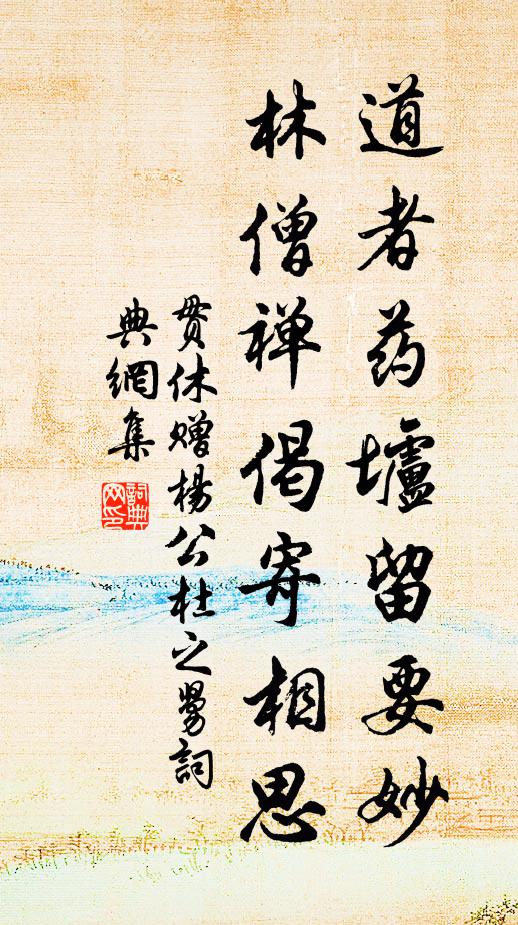 道者药壚留要妙
林僧禅偈寄相思
贯休赠杨公杜之舅詞
典網集
詞典
网印